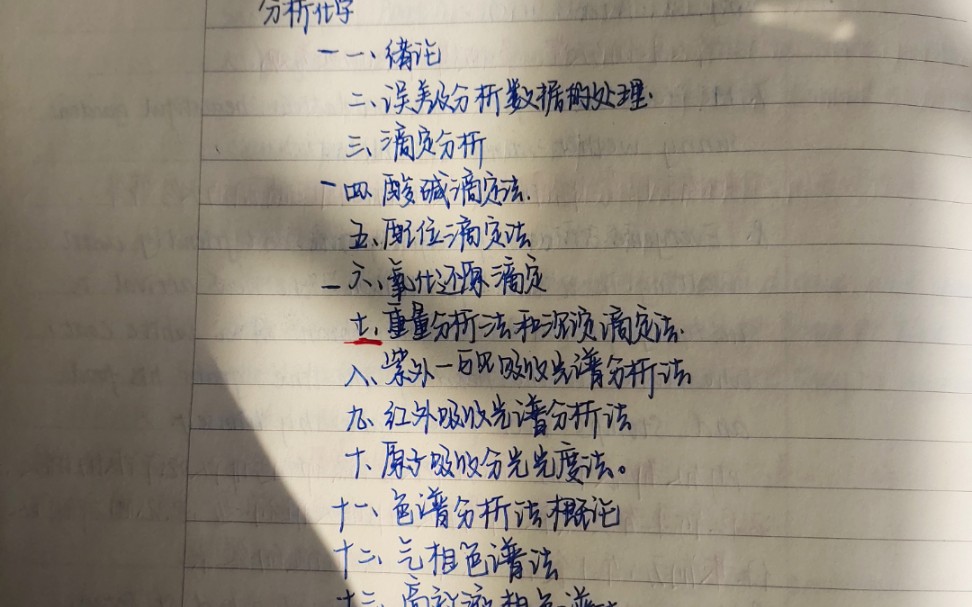 分析化学
一、绪论
二、误差及分析数据的处理.
三、滴定分析
四、酸碱滴定法.
五、配位滴定法
六、氧化还原滴定
七、重量分析法和沉淀滴定法.
八、紫外-可见吸收光谱分析法
九、红外吸收光谱分析法
十、原子吸收分光光度法。
十一、色谱分析法概论
十二、气相色谱法
十三、高效液相色谱法